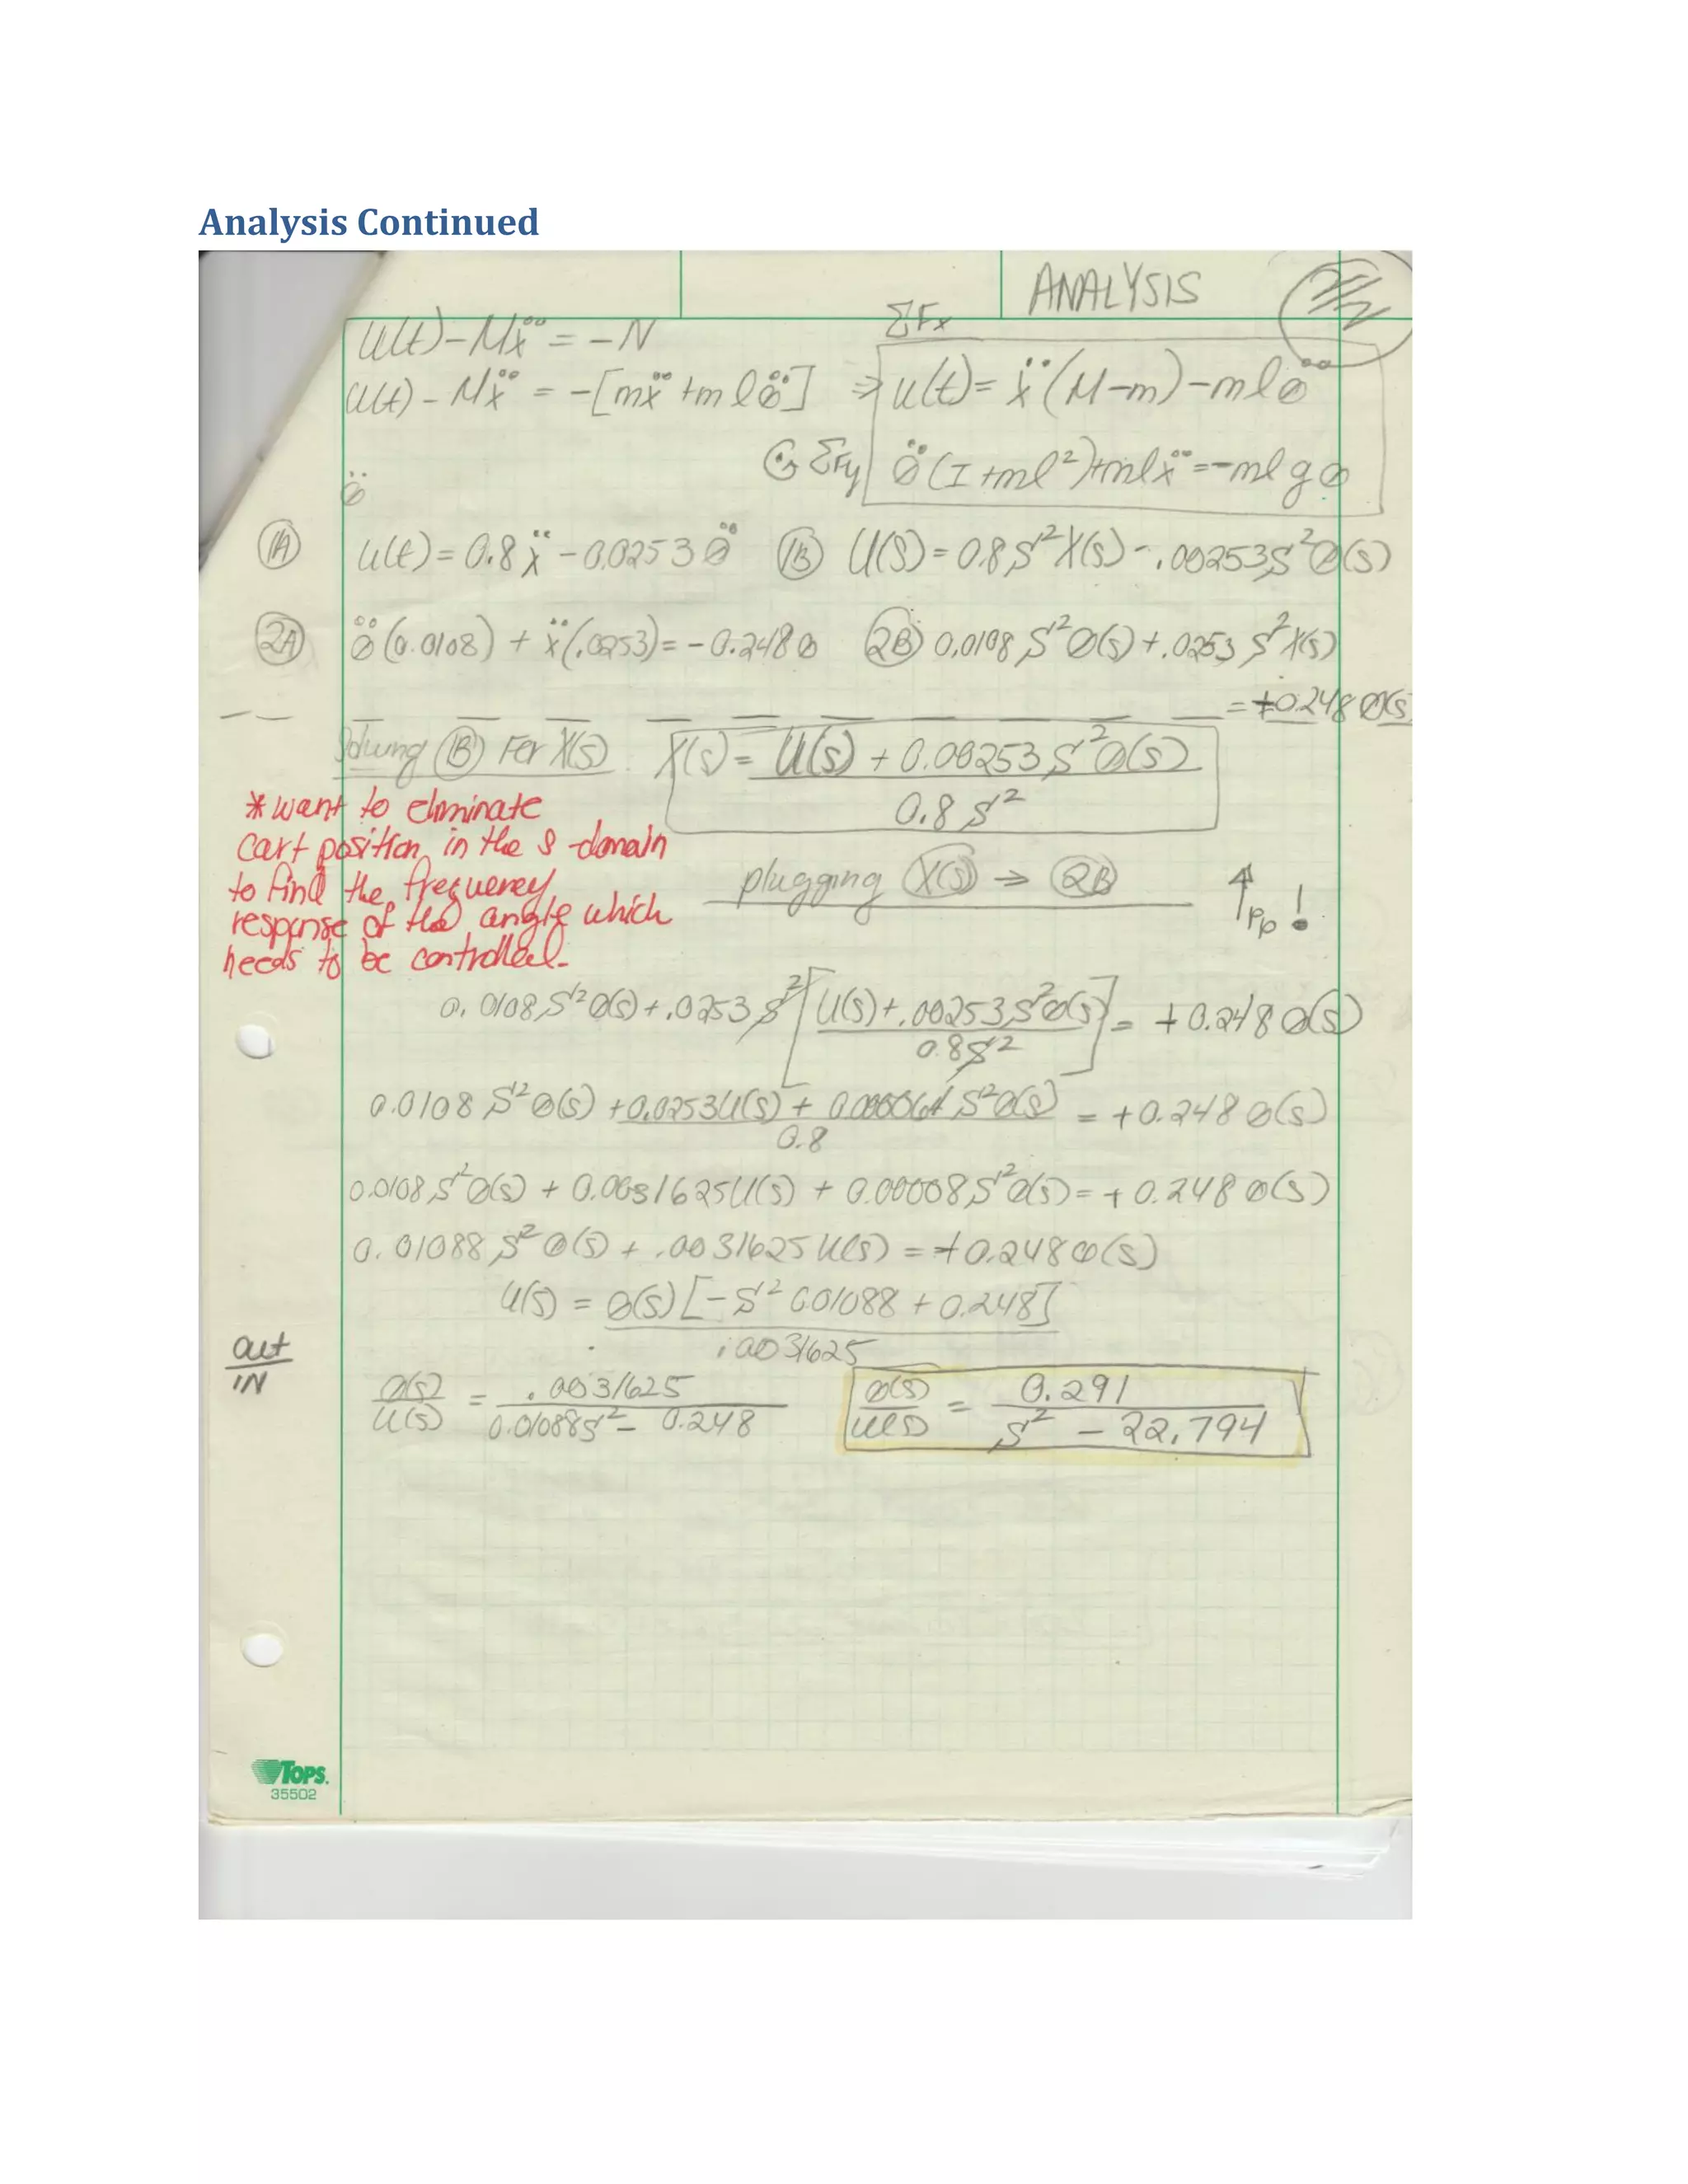 Analysis Continued
ANALYSIS
ΣFx
U(t)-Mẍ = -N
U(t) - Mẍ = -[mẍ +mlӪ] ⇒ u(t)= ẍ(M-m)-mlӪ
ΣFy Ӫ(I+ml²)+mlẍ=-mlgØ
Ӫ
1A u(t)= 0.8ẍ - 0.0253Ӫ 1B U(S)= 0.8S²X(s) - .00253S²Ø(s)
2A Ӫ(0.0108) + ẍ(.0253)= -0.248Ø 2B 0.0108S²Ø(s)+.0253S²X(s)
= +0.248Ø(s)
Solving 1B For X(s) X(s)= U(s) + 0.00253S²Ø(s)
0.8S²
*want to eliminate
cart position in the S-domain
to find the frequency
response of the angle which
needs to be controlled.
plugging X(s) → 2B
↑ PP!
0.0108S²Ø(s)+.0253S²[U(s)+.00253S²Ø(s)] = +0.248Ø(s)
0.8S²
0.0108S²Ø(s) +0.0253U(s) + 0.000064S²Ø(s) = +0.248Ø(s)
0.8
0.0108S²Ø(s) + 0.0031625U(s) + 0.00008S²Ø(s)= +0.248Ø(s)
0.01088S²Ø(s) + .0031625U(s) = +0.248Ø(s)
U(s) = Ø(s)[-S² 0.01088 + 0.248]
.0031625
out
IN
Ø(s) = .0031625
U(s) 0.01088S² - 0.248
Ø(s) = 0.291
U(s) S² - 22.794
TOPS.
35502